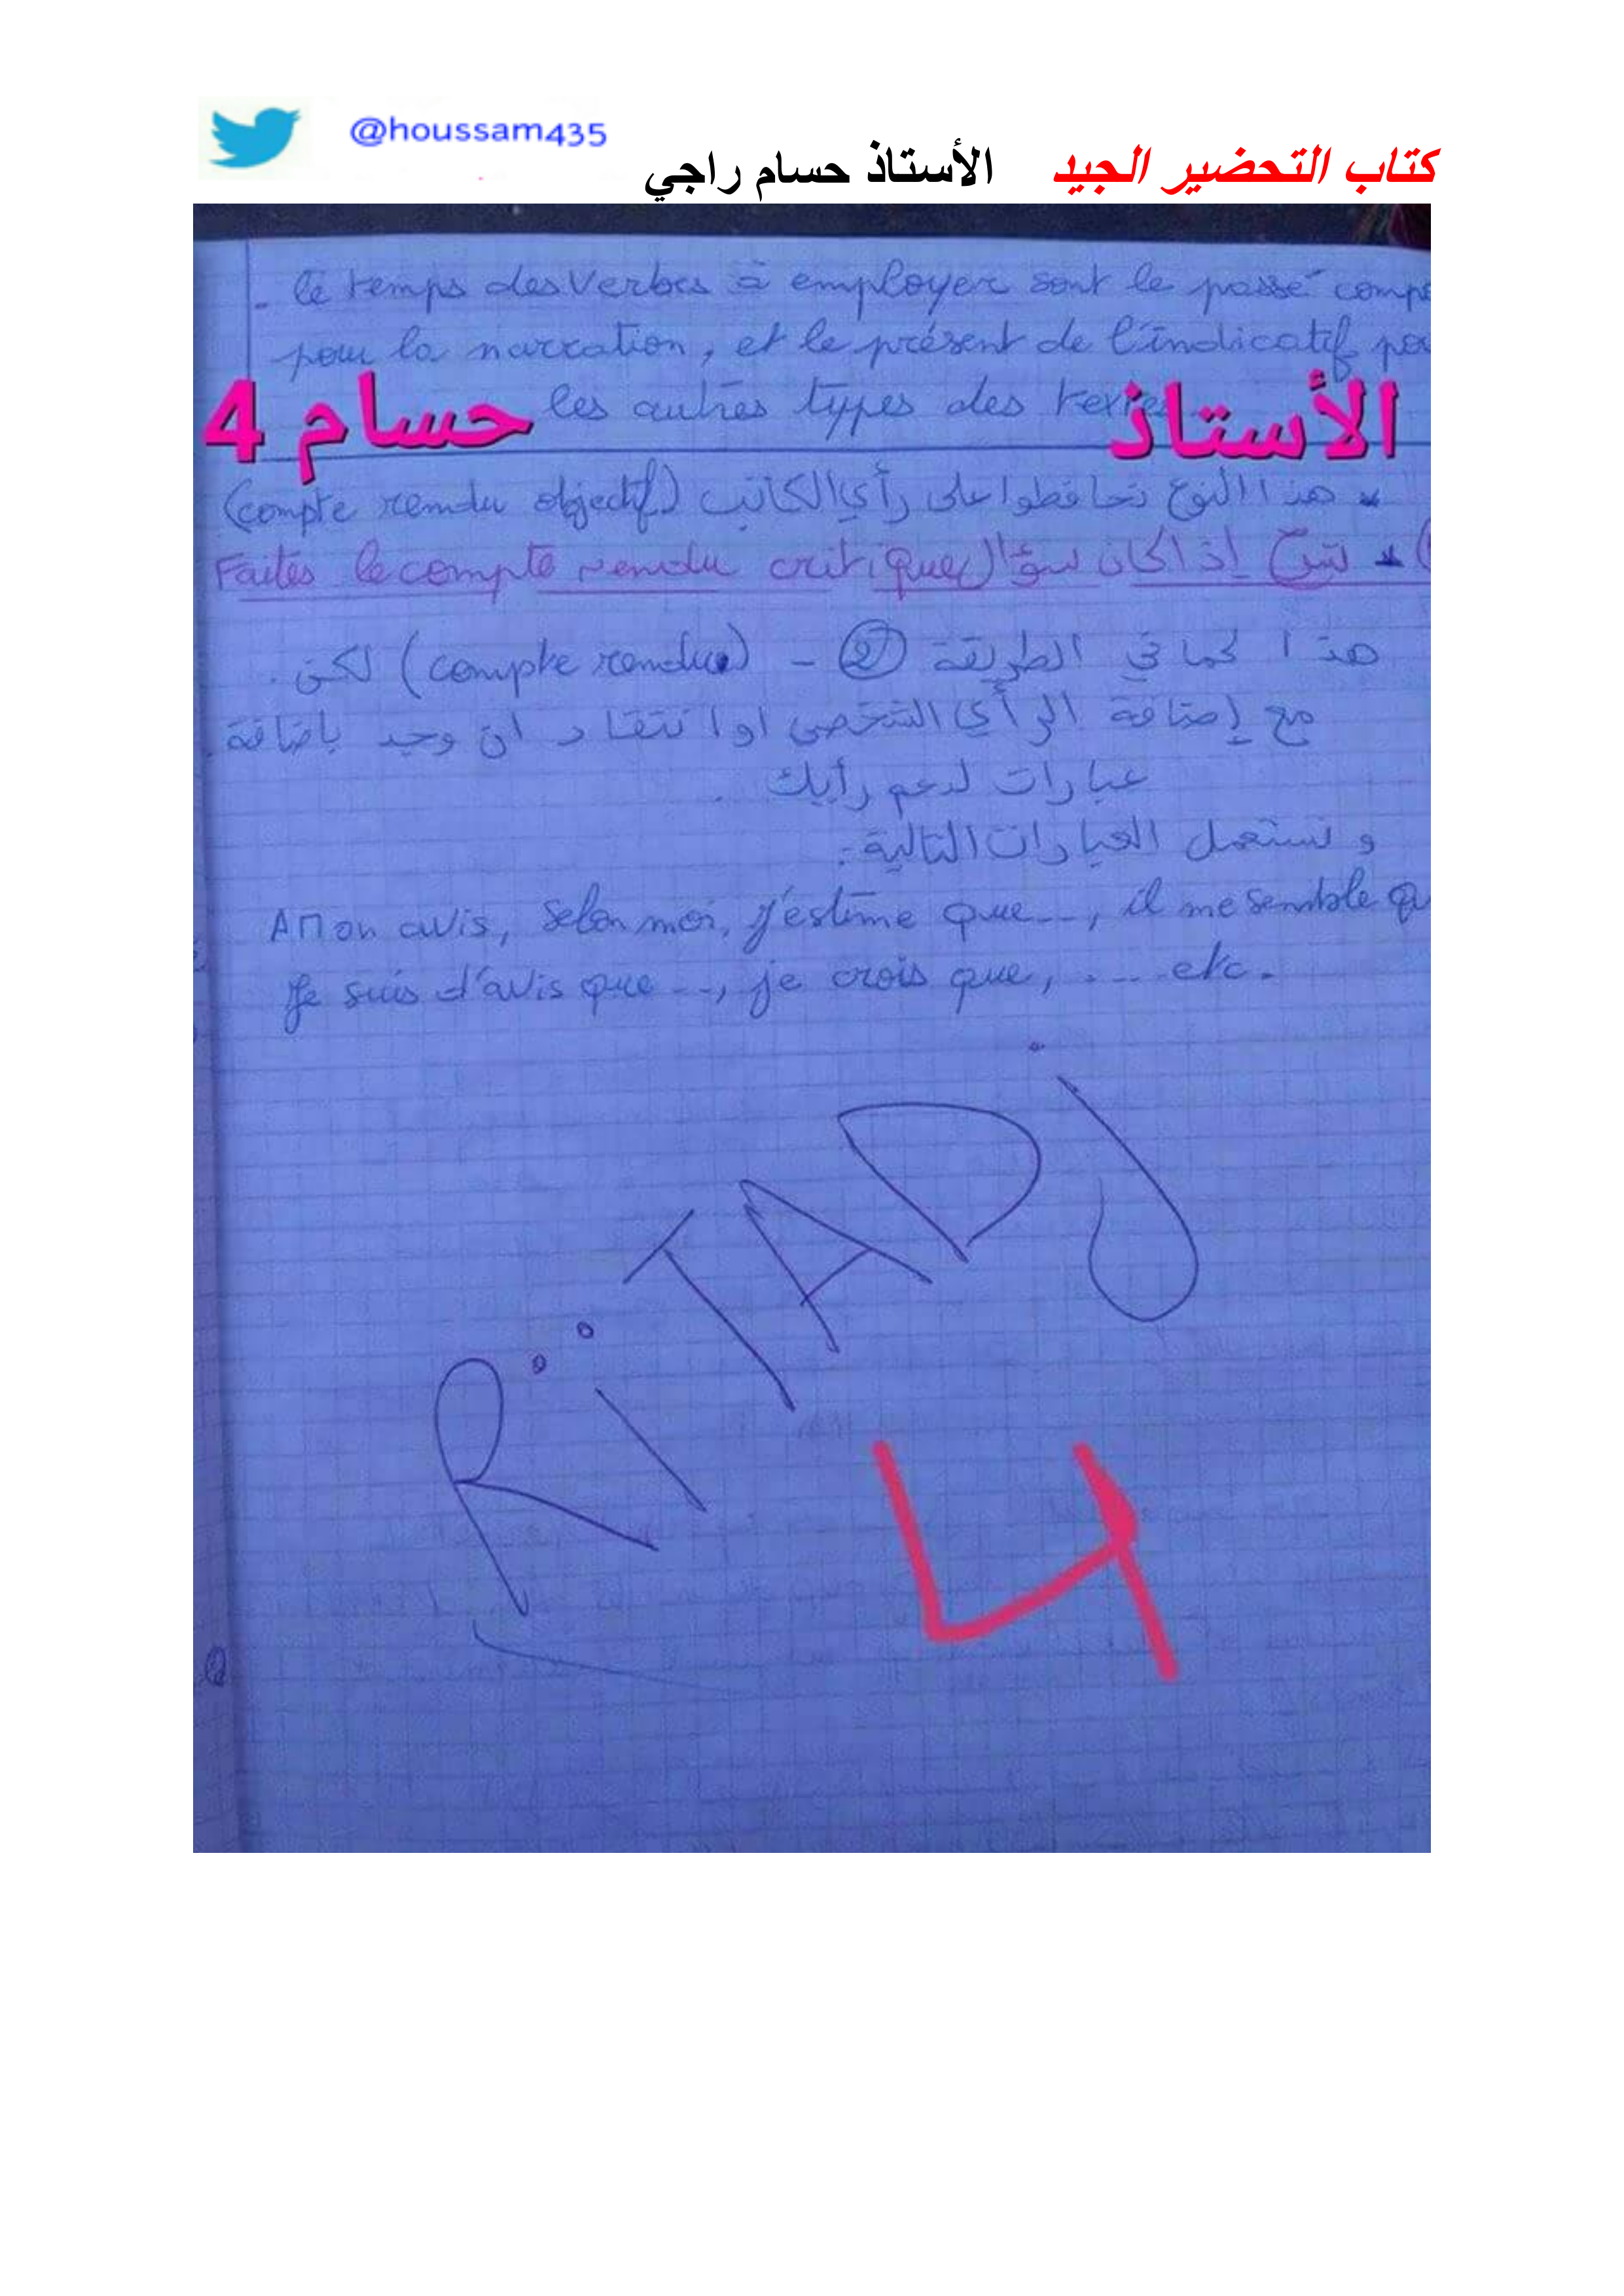 @houssam435
كتاب التحضير الجيد الأستاذ حسام راجي
- le temps des verbes à employer sont le passé comp
pour la narration, et le présent de l'indicatif po
les autres types des textes
الأستاذ حسام 4
* هذا النوع تحافظوا على رأي الكاتب (compte rendu objectif)
* إذا كان سؤال Faites le compte rendu critique
هذا كما في الطريقة ② - (compte rendu) لكن.
مع إضافة الرأي الشخصي او انتقاد ان وجد باضافة
عبارات لدعم رأيك
و نستعمل العبارات التالية:
A Mon avis, selon moi, j'estime que..., il me semble qu
Je suis d'avis que..., je crois que, .... etc.
RiTADj
4